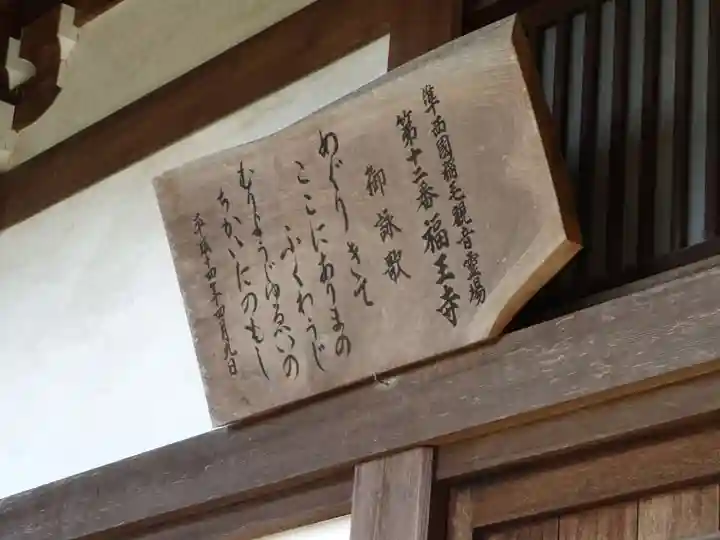 準西國稲毛観音霊場
第十二番 福王寺
御詠歌
めぐりきて
ここにありまの
ふくわうじ
むりようじゆゑいの
ちかいたのもし
平成十四年四月九日